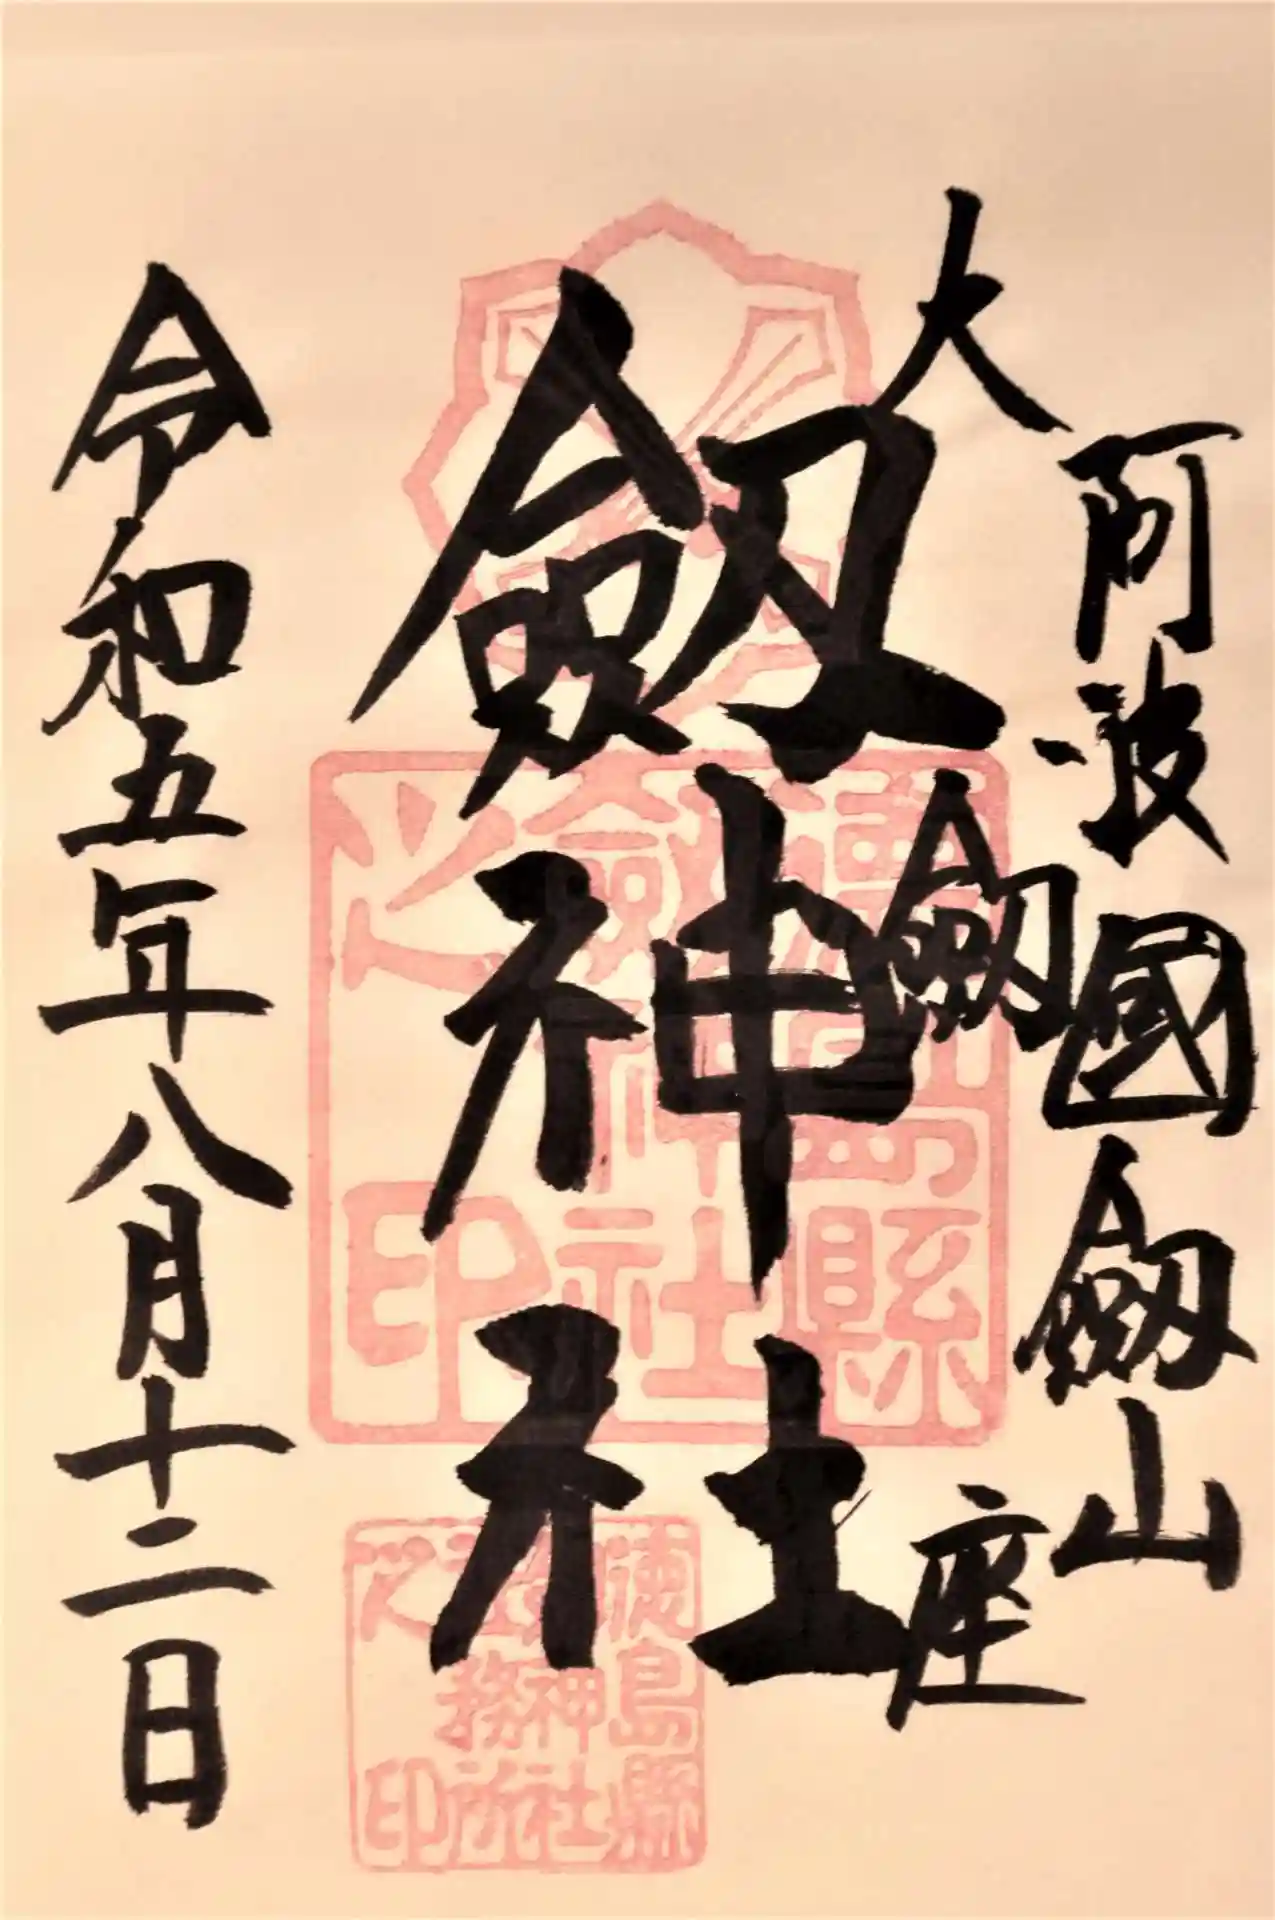 阿波國劔山
大劔座
劔神社
令和五年八月十二日
德島縣
社
之印
德島縣
神社
務所
之印